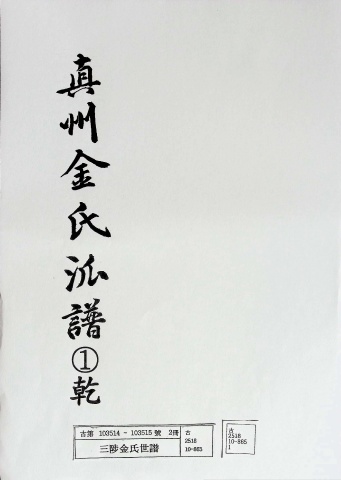 真州金氏派譜①乾
古第 103514 - 103515 號 2冊
三陟金氏世譜
古
2518
10-865
古
2518
10-865
1